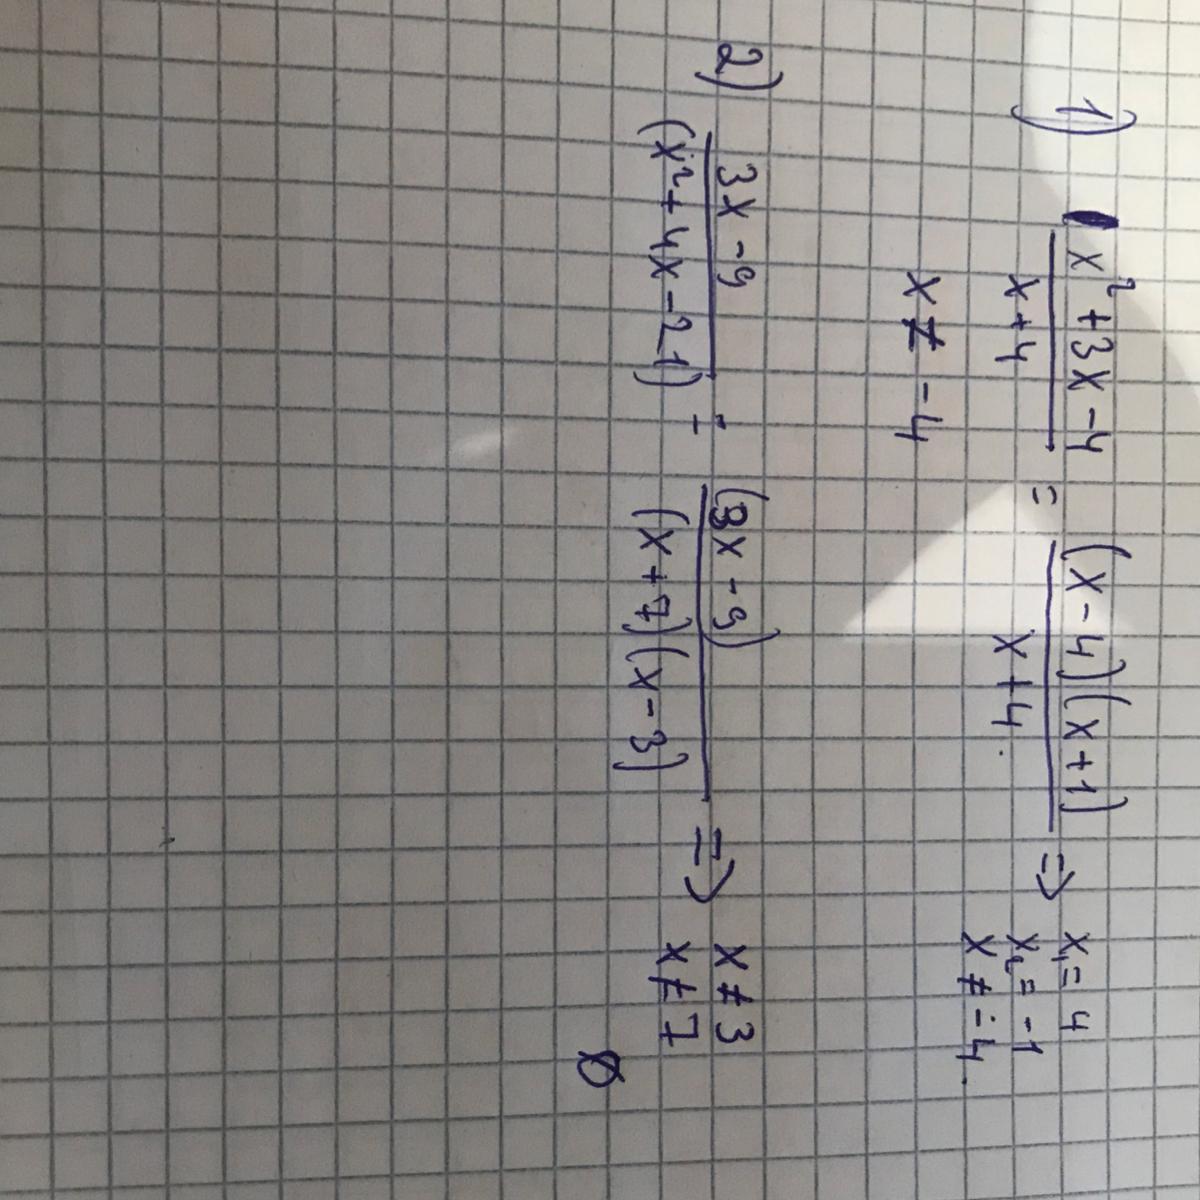 1) x² + 3x - 4 / x + 4 = (x - 4)(x + 1) / x + 4. ⇒ x₁ = 4
x₂ = -1
x ≠ -4.
x ≠ -4
2) 3x - 9 / (x² + 4x - 21) = (3x - 9) / (x + 7)(x - 3) ⇒ x ≠ 3
x ≠ 7
Ø